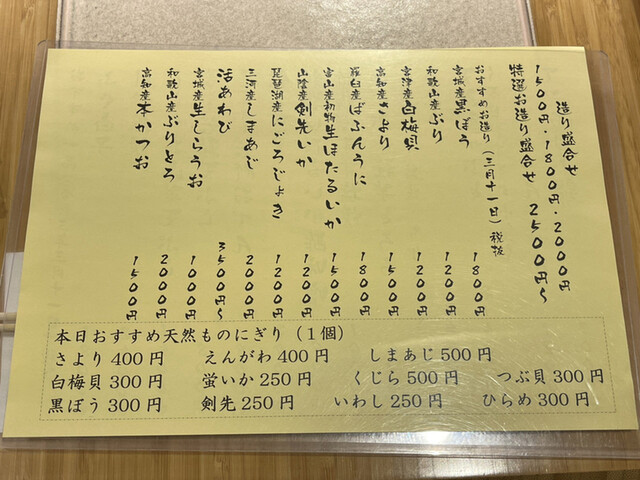 造り盛合せ
1500円・1800円・2000円
特選お造り盛合せ 2500円〜
おすすめお造り(三月十一日)税抜
宮城産黒ぼう 1800円
和歌山産ぶり 1200円
宮津産白梅貝 1200円
高知産さより 1500円
羅臼産ばふんうに 1800円
富山産初物生ほたるいか 1500円
山陰産剣先いか 1200円
琵琶湖産にごろじょき 1200円
三河産しまあじ 2000円
活あわび 3500円〜
宮城産生しらうお 1000円
和歌山産ぶりとろ 2000円
高知産本かつお 1500円
本日おすすめ天然ものにぎり(1個)
さより400円 えんがわ400円 しまあじ500円
白梅貝300円 蛍いか250円 くじら500円 つぶ貝300円
黒ぼう300円 剣先250円 いわし250円 ひらめ300円